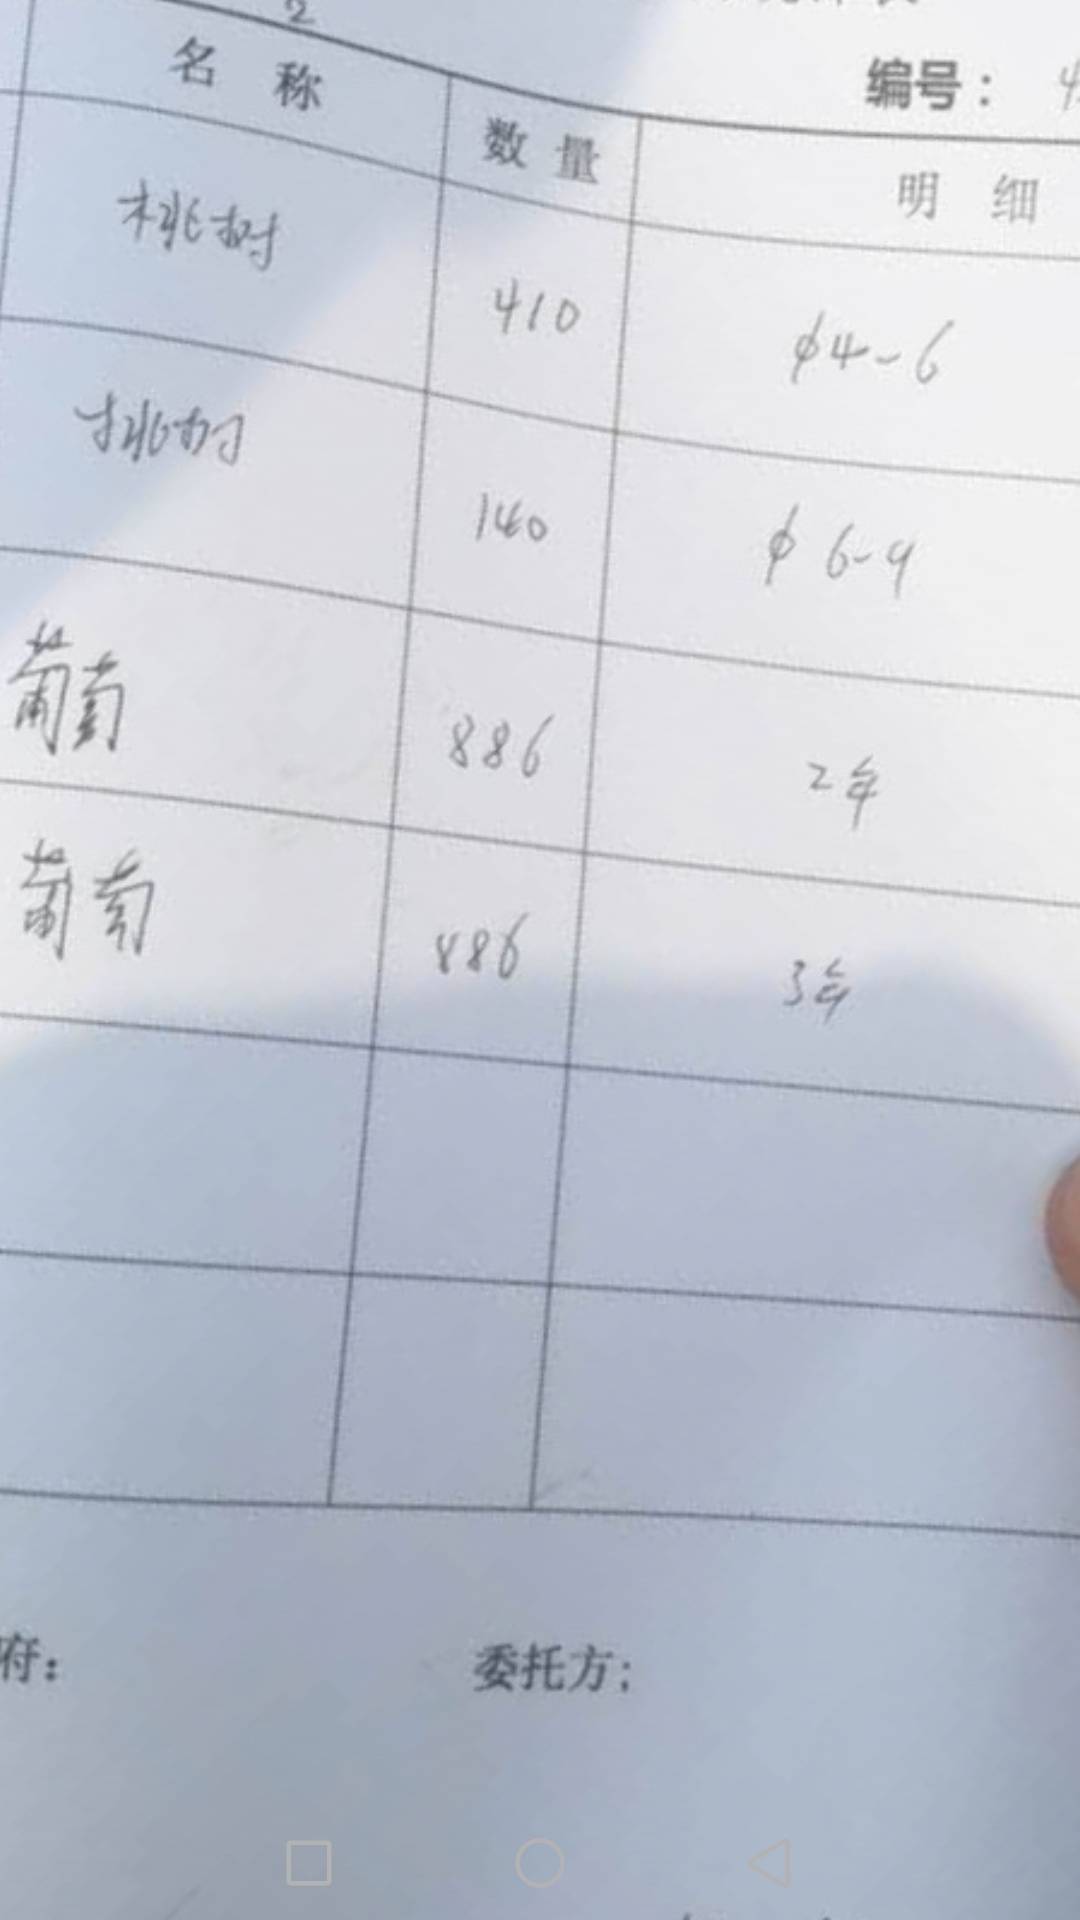 2
编号：4
名 称 数 量 明 细
桃树 410 φ4-6
桃树 140 φ 6-9
葡萄 886 2年
葡萄 886 3年
府： 委托方；